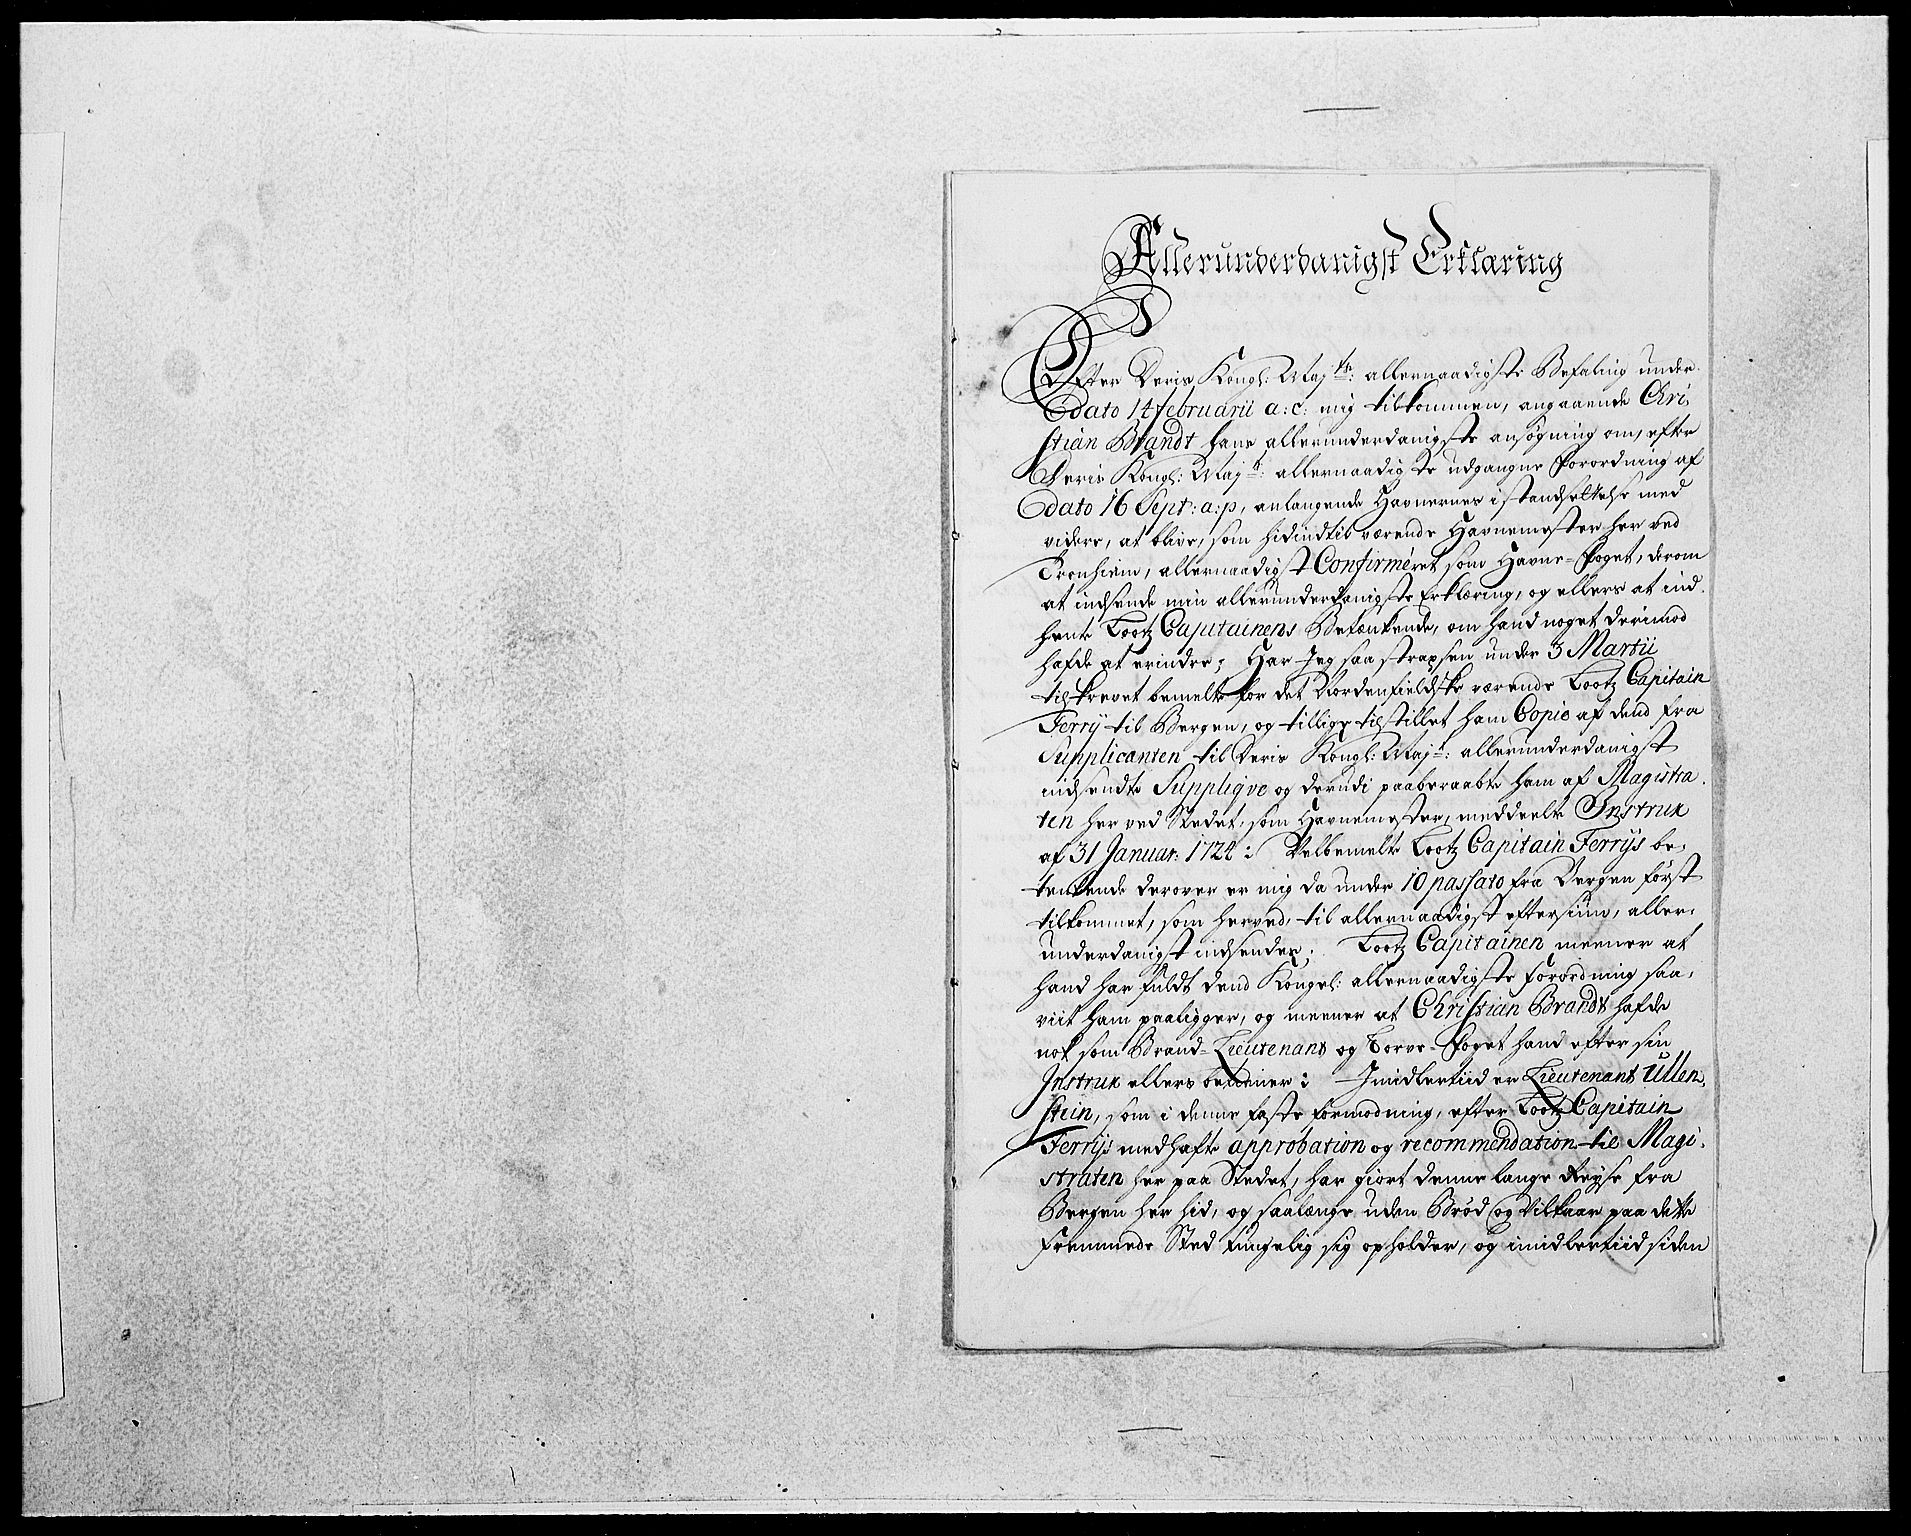 Allerunderdanigst Erklæring
Efter Deris Kongl: Maj:ts: allernaadigste Befaling under
dato 14 februarii a:c: mig tilkommen, angaaende Chri-
stian Brandt hans allerunderdanigste ansøgning om, efter
Deris Kongl: Maj:ts: allernaadigste udgangne Forordning af
dato 16 Sept: a:p, anlangende Havnernes istandsettelse med
videre, at blive, som hidindtil værende Havnemester her ved
Tronhiem, allernaadigst Confirmeret som Havne-Foget, derom
at indsende min allerunderdanigste Erklæring, og ellers at ind-
hente Lootz Capitainens Betænkende, om hand noget derimod
hafde at erindre; Har Jeg saa strapsen under 3 Martii
tilskrevet bemelte for det Nordenfieldske værende Lootz Capitain
Ferrÿ til Bergen, og tillige tilstillet ham Copie af dend fra
Supplicanten til Deris Kongl: Maj:t: allerunderdanigst
indsendte Suppliqve og derudi paaberaabte ham af Magistra-
ten her ved Stedet, som Havnemester, meddeelte Instrux
af 31 Januar: 1724: Velbemelte Lootz Capitain Ferrÿs be-
tenkende derover er mig da under 10 passato fra Bergen først
tilkommet, som herved, til allernaadigst eftersiun, aller-
underdanigst indsendes; Lootz Capitainen meener at
hand har fuldt dend Kongel: allernaadigste forordning saa-
viit ham paaligger, og meener at Christian Brandt hafde
nok som Brand-Lieutenant og Torve-Foget hand efter sin
Instrux ellers betiener: Imidlertiid er Lieutenant Ullen-
stein, som i denne faste formodning, efter Lootz Capitain
Ferrÿs medhafte approbation og recommendation til Magi-
straten her paa Stedet, har giort denne lange Reÿse fra
Bergen her hid, og saalænge uden Brød og Vilkaar paa dette
fremmede Sted sig opholder, og imidlertiid siden